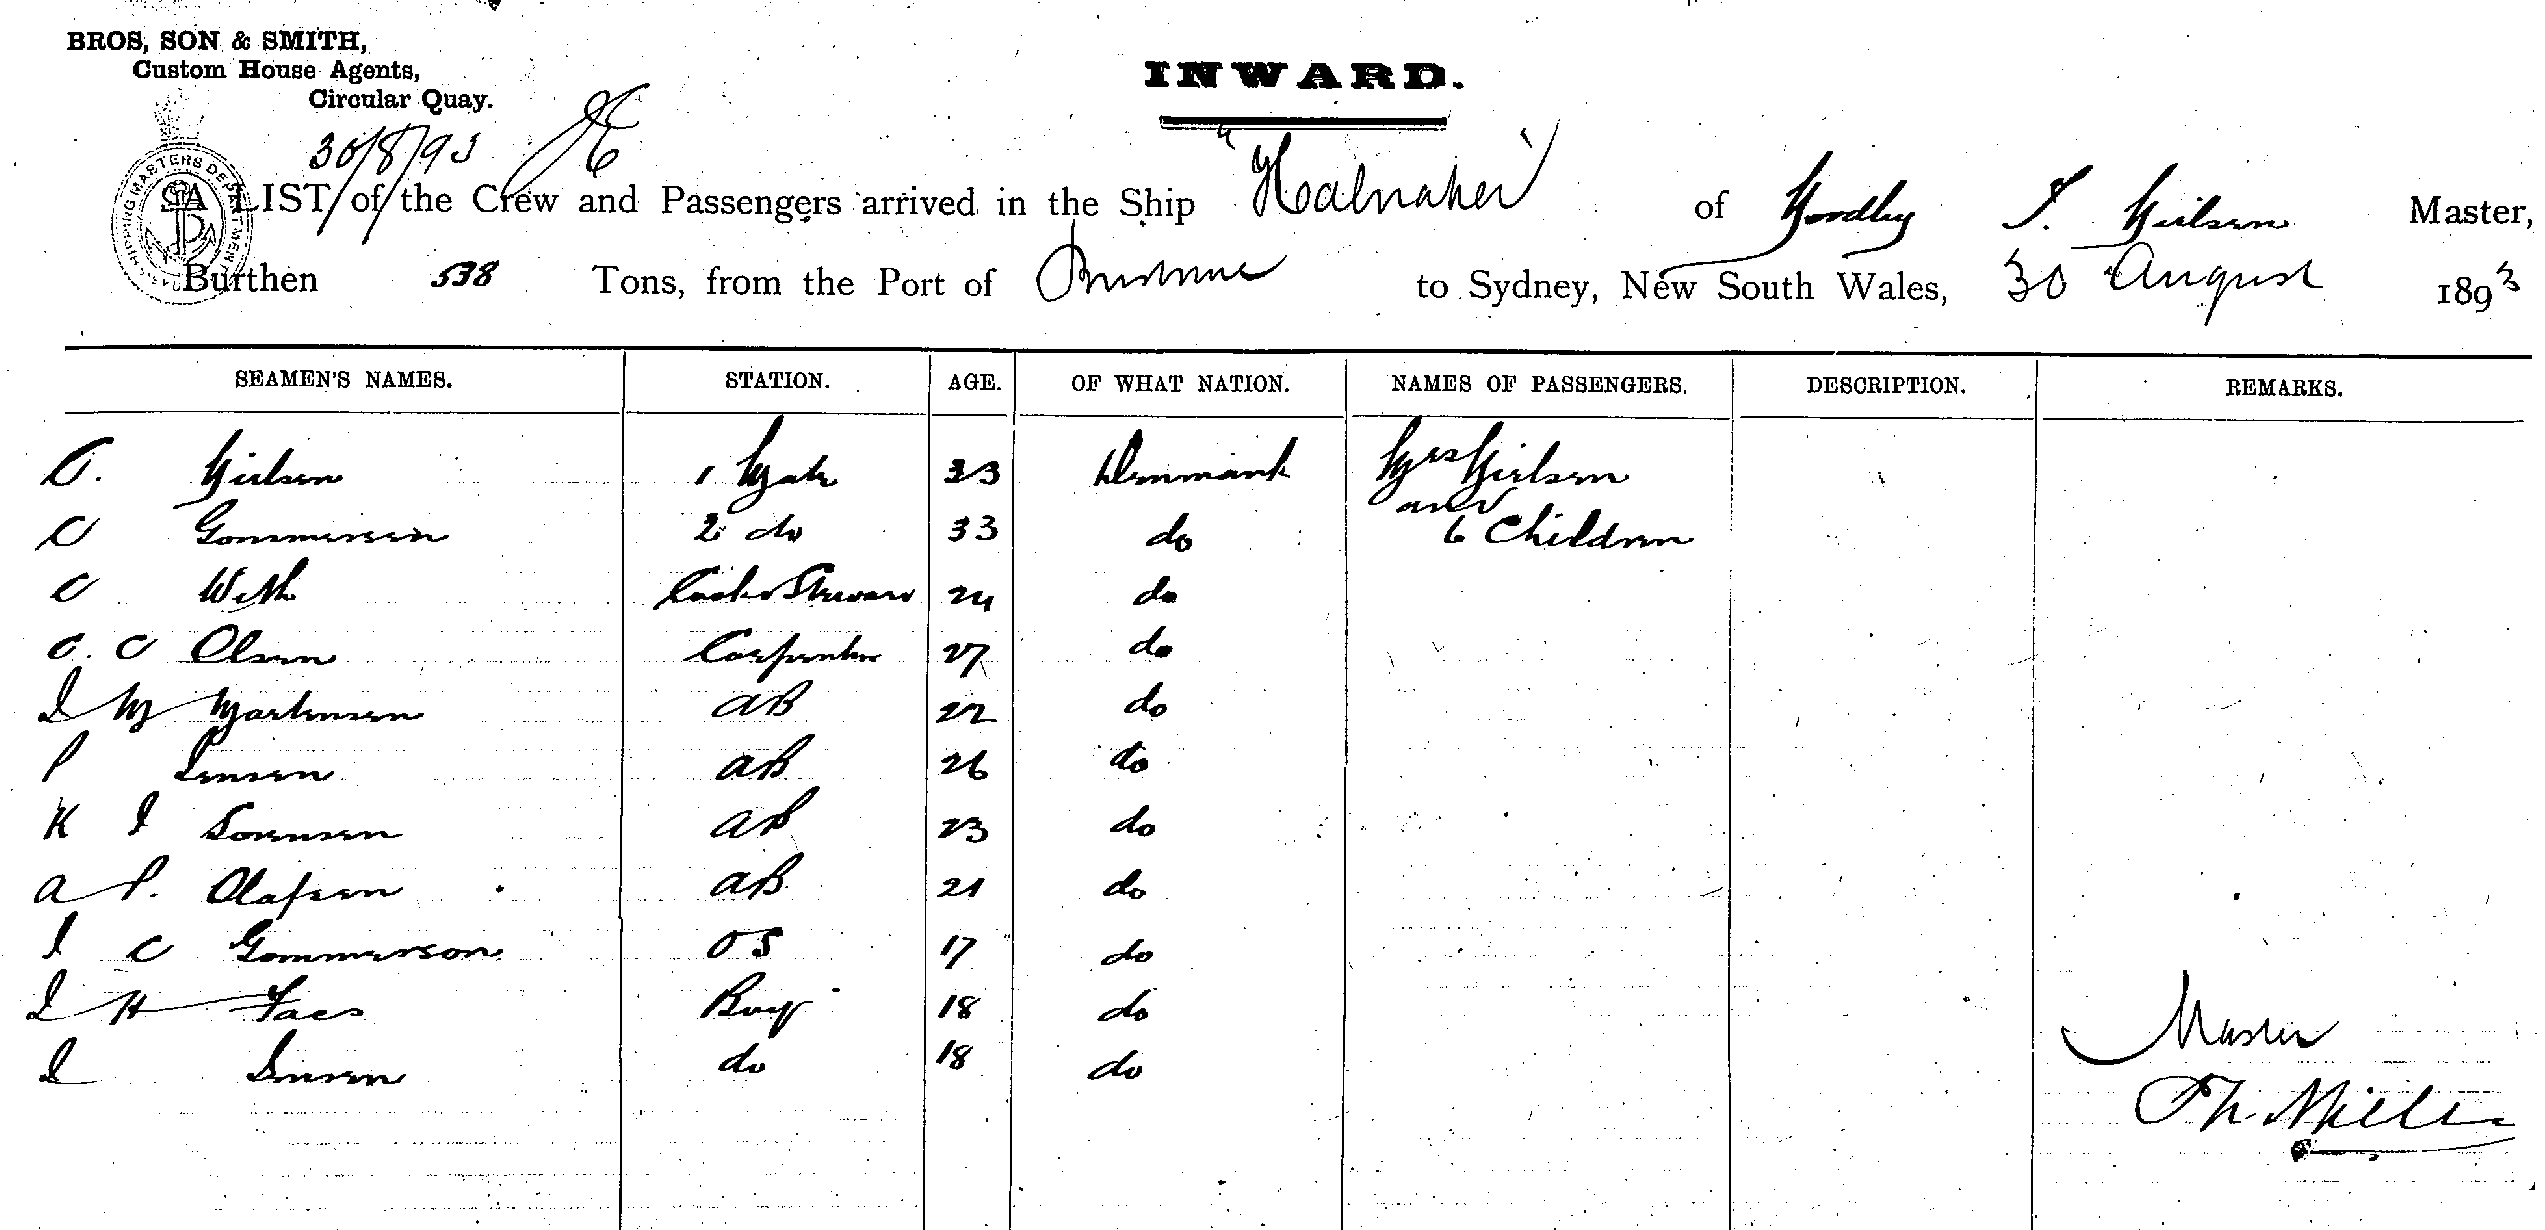 BROS, SON & SMITH,
Custom House Agents,
Circular Quay.
INWARD.
30/8/93
A LIST of the Crew and Passengers arrived in the Ship "Halnaker" of T. Nielsen Master,
Burthen 538 Tons, from the Port of Brisbane to Sydney, New South Wales, 30 August 1893
SEAMEN'S NAMES. STATION. AGE. OF WHAT NATION. NAMES OF PASSENGERS. DESCRIPTION. REMARKS.
Nielsen 1 Mate 33 Denmark Mrs Nielsen
and
C Gommersen 2 do 33 do 6 Children
C Weth Cook & Steward 24 do
C. C Olsen Carpenter 27 do
I M Martensen AB 22 do
P Jensen AB 26 do
K I Sorensen AB 23 do
A P. Olafsen AB 21 do
I C Gommerson OS 17 do
I H Faes Boy 18 do
I Jensen do 18 do
Master